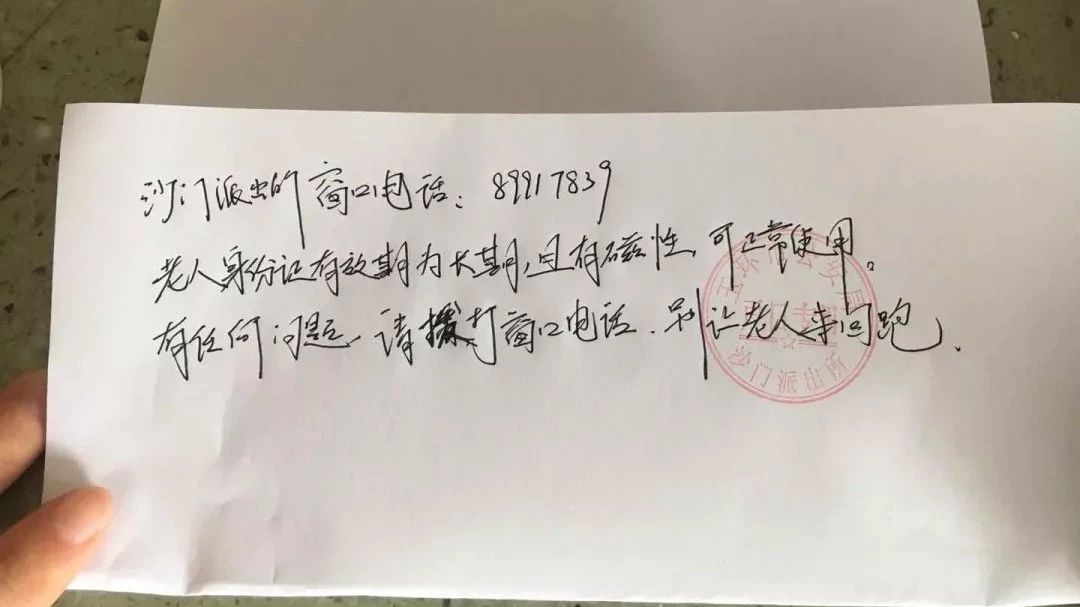 沙门派出所窗口电话:89917839
老人身份证有效期为长期,且有磁性,可正常使用。
有任何问题,请拨打窗口电话.别让老人来回跑.
玉环市公安局
沙门派出所